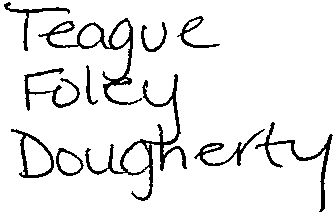 Teague
Foley
Dougherty